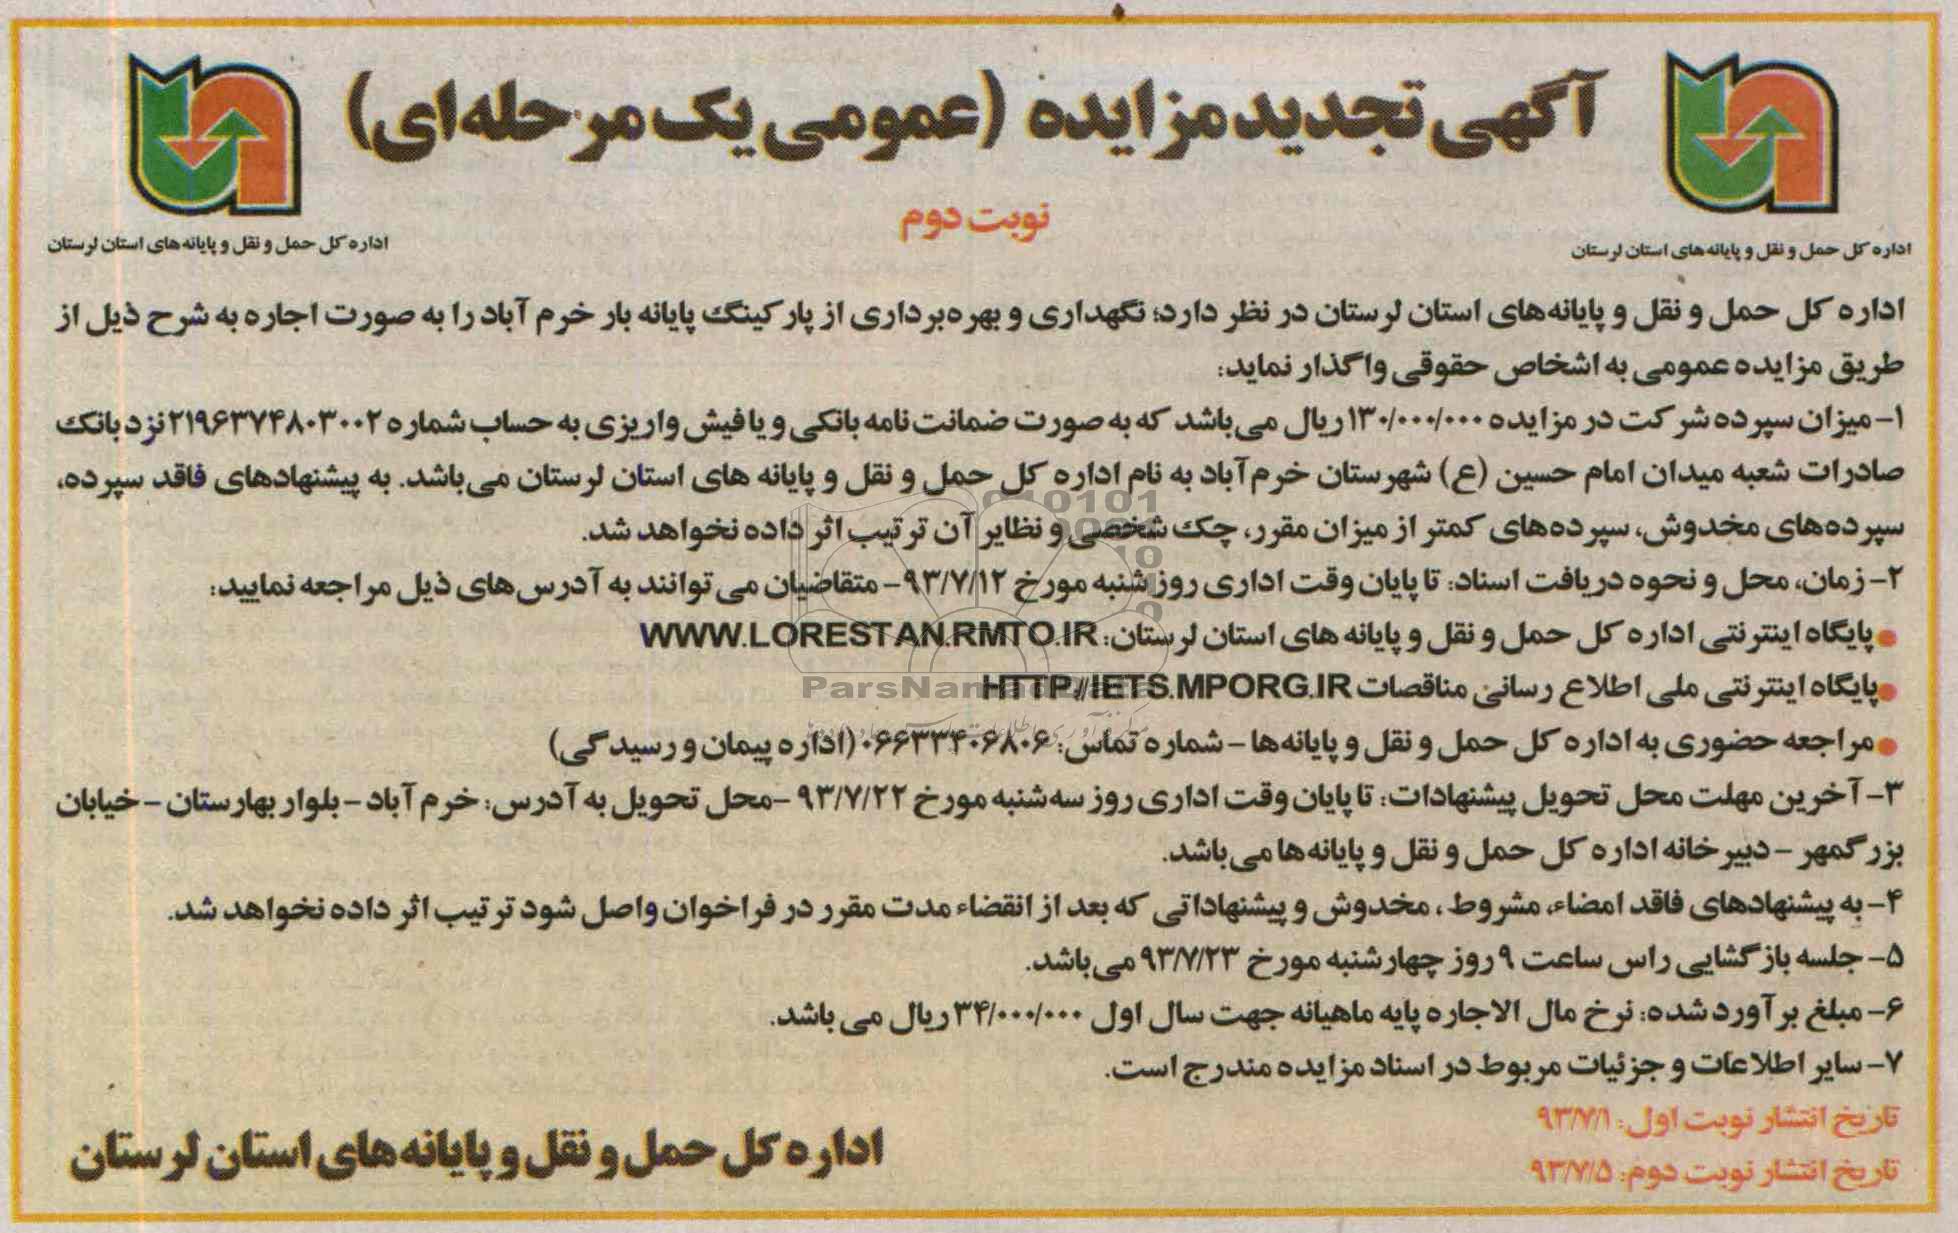 آگهی تجدید مزایده (عمومی یک مرحله‌ای)
نوبت دوم
اداره کل حمل و نقل و پایانه‌های استان لرستان
اداره کل حمل و نقل و پایانه‌های استان لرستان
اداره کل حمل و نقل و پایانه‌های استان لرستان در نظر دارد؛ نگهداری و بهره‌برداری از پارکینگ پایانه بار خرم آباد را به صورت اجاره به شرح ذیل از
طریق مزایده عمومی به اشخاص حقوقی واگذار نماید:
۱- میزان سپرده شرکت در مزایده ۱۳۰/۰۰۰/۰۰۰ ریال می‌باشد که به صورت ضمانت نامه بانکی و یا فیش واریزی به حساب شماره ۲۱۹۶۳۷۴۸۰۳۰۰۲ نزد بانک
صادرات شعبه میدان امام حسین (ع) شهرستان خرم‌آباد به نام اداره کل حمل و نقل و پایانه های استان لرستان می‌باشد. به پیشنهادهای فاقد سپرده،
سپرده‌های مخدوش، سپرده‌های کمتر از میزان مقرر، چک شخصی و نظایر آن ترتیب اثر داده نخواهد شد.
۲- زمان، محل و نحوه دریافت اسناد: تا پایان وقت اداری روز شنبه مورخ ۹۳/۷/۱۲- متقاضیان می توانند به آدرس‌های ذیل مراجعه نمایید:
● پایگاه اینترنتی اداره کل حمل و نقل و پایانه های استان لرستان: WWW.LORESTAN.RMTO.IR
● پایگاه اینترنتی ملی اطلاع رسانی مناقصات HTTP://IETS.MPORG.IR
● مراجعه حضوری به اداره کل حمل و نقل و پایانه‌ها - شماره تماس: ۰۶۶۳۳۴۰۶۸۰۶ (اداره پیمان و رسیدگی)
۳- آخرین مهلت محل تحویل پیشنهادات: تا پایان وقت اداری روز سه‌شنبه مورخ ۹۳/۷/۲۲ -محل تحویل به آدرس: خرم آباد - بلوار بهارستان - خیابان
بزرگمهر - دبیرخانه اداره کل حمل و نقل و پایانه‌ها می‌باشد.
۴- به پیشنهادهای فاقد امضاء، مشروط ، مخدوش و پیشنهاداتی که بعد از انقضاء مدت مقرر در فراخوان واصل شود ترتیب اثر داده نخواهد شد.
۵- جلسه بازگشایی راس ساعت ۹ روز چهارشنبه مورخ ۹۳/۷/۲۳ می‌باشد.
۶- مبلغ برآورد شده: نرخ مال الاجاره پایه ماهیانه جهت سال اول ۳۴/۰۰۰/۰۰۰ ریال می باشد.
۷- سایر اطلاعات و جزئیات مربوط در اسناد مزایده مندرج است.
تاریخ انتشار نوبت اول: ۹۳/۷/۱
تاریخ انتشار نوبت دوم: ۹۳/۷/۵
اداره کل حمل و نقل و پایانه‌های استان لرستان